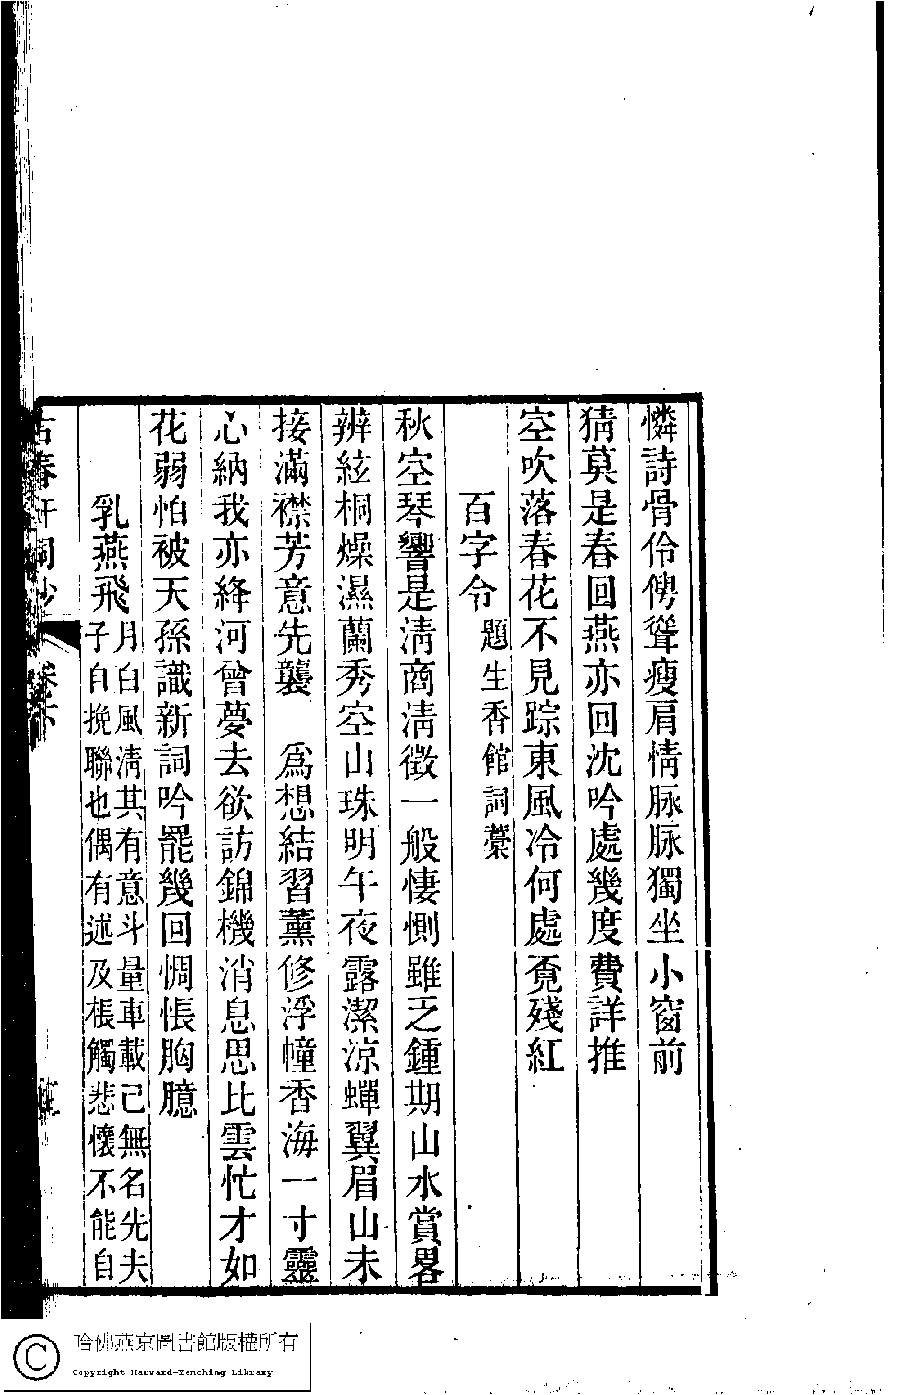 憐詩骨伶俜聳瘦肩情脉脉獨坐小窗前
猜莫是春回燕亦回沈吟處幾度費詳推
空吹落春花不見踪東風冷何處覓殘紅
百字令題生香館詞藁
秋空琴響是淸商淸徵一般悽惻雖乏鍾期山水賞畧
辨絃桐燥濕蘭秀空山珠明午夜露潔涼蟬翼眉山未
接滿襟芳意先襲 爲想結習薰修浮幢香海一寸靈
心納我亦絳河曾夢去欲訪錦機消息思比雲忙才如
花弱怕被天孫識新詞吟罷幾回惆悵胸臆
乳燕飛月白風淸其有意斗量車載已無名先夫
子自挽聯也偶有述及棖觸悲懷不能自
古春軒詞鈔
哈佛燕京圖書館版權所有
Copyright Harvard-Yenching Library